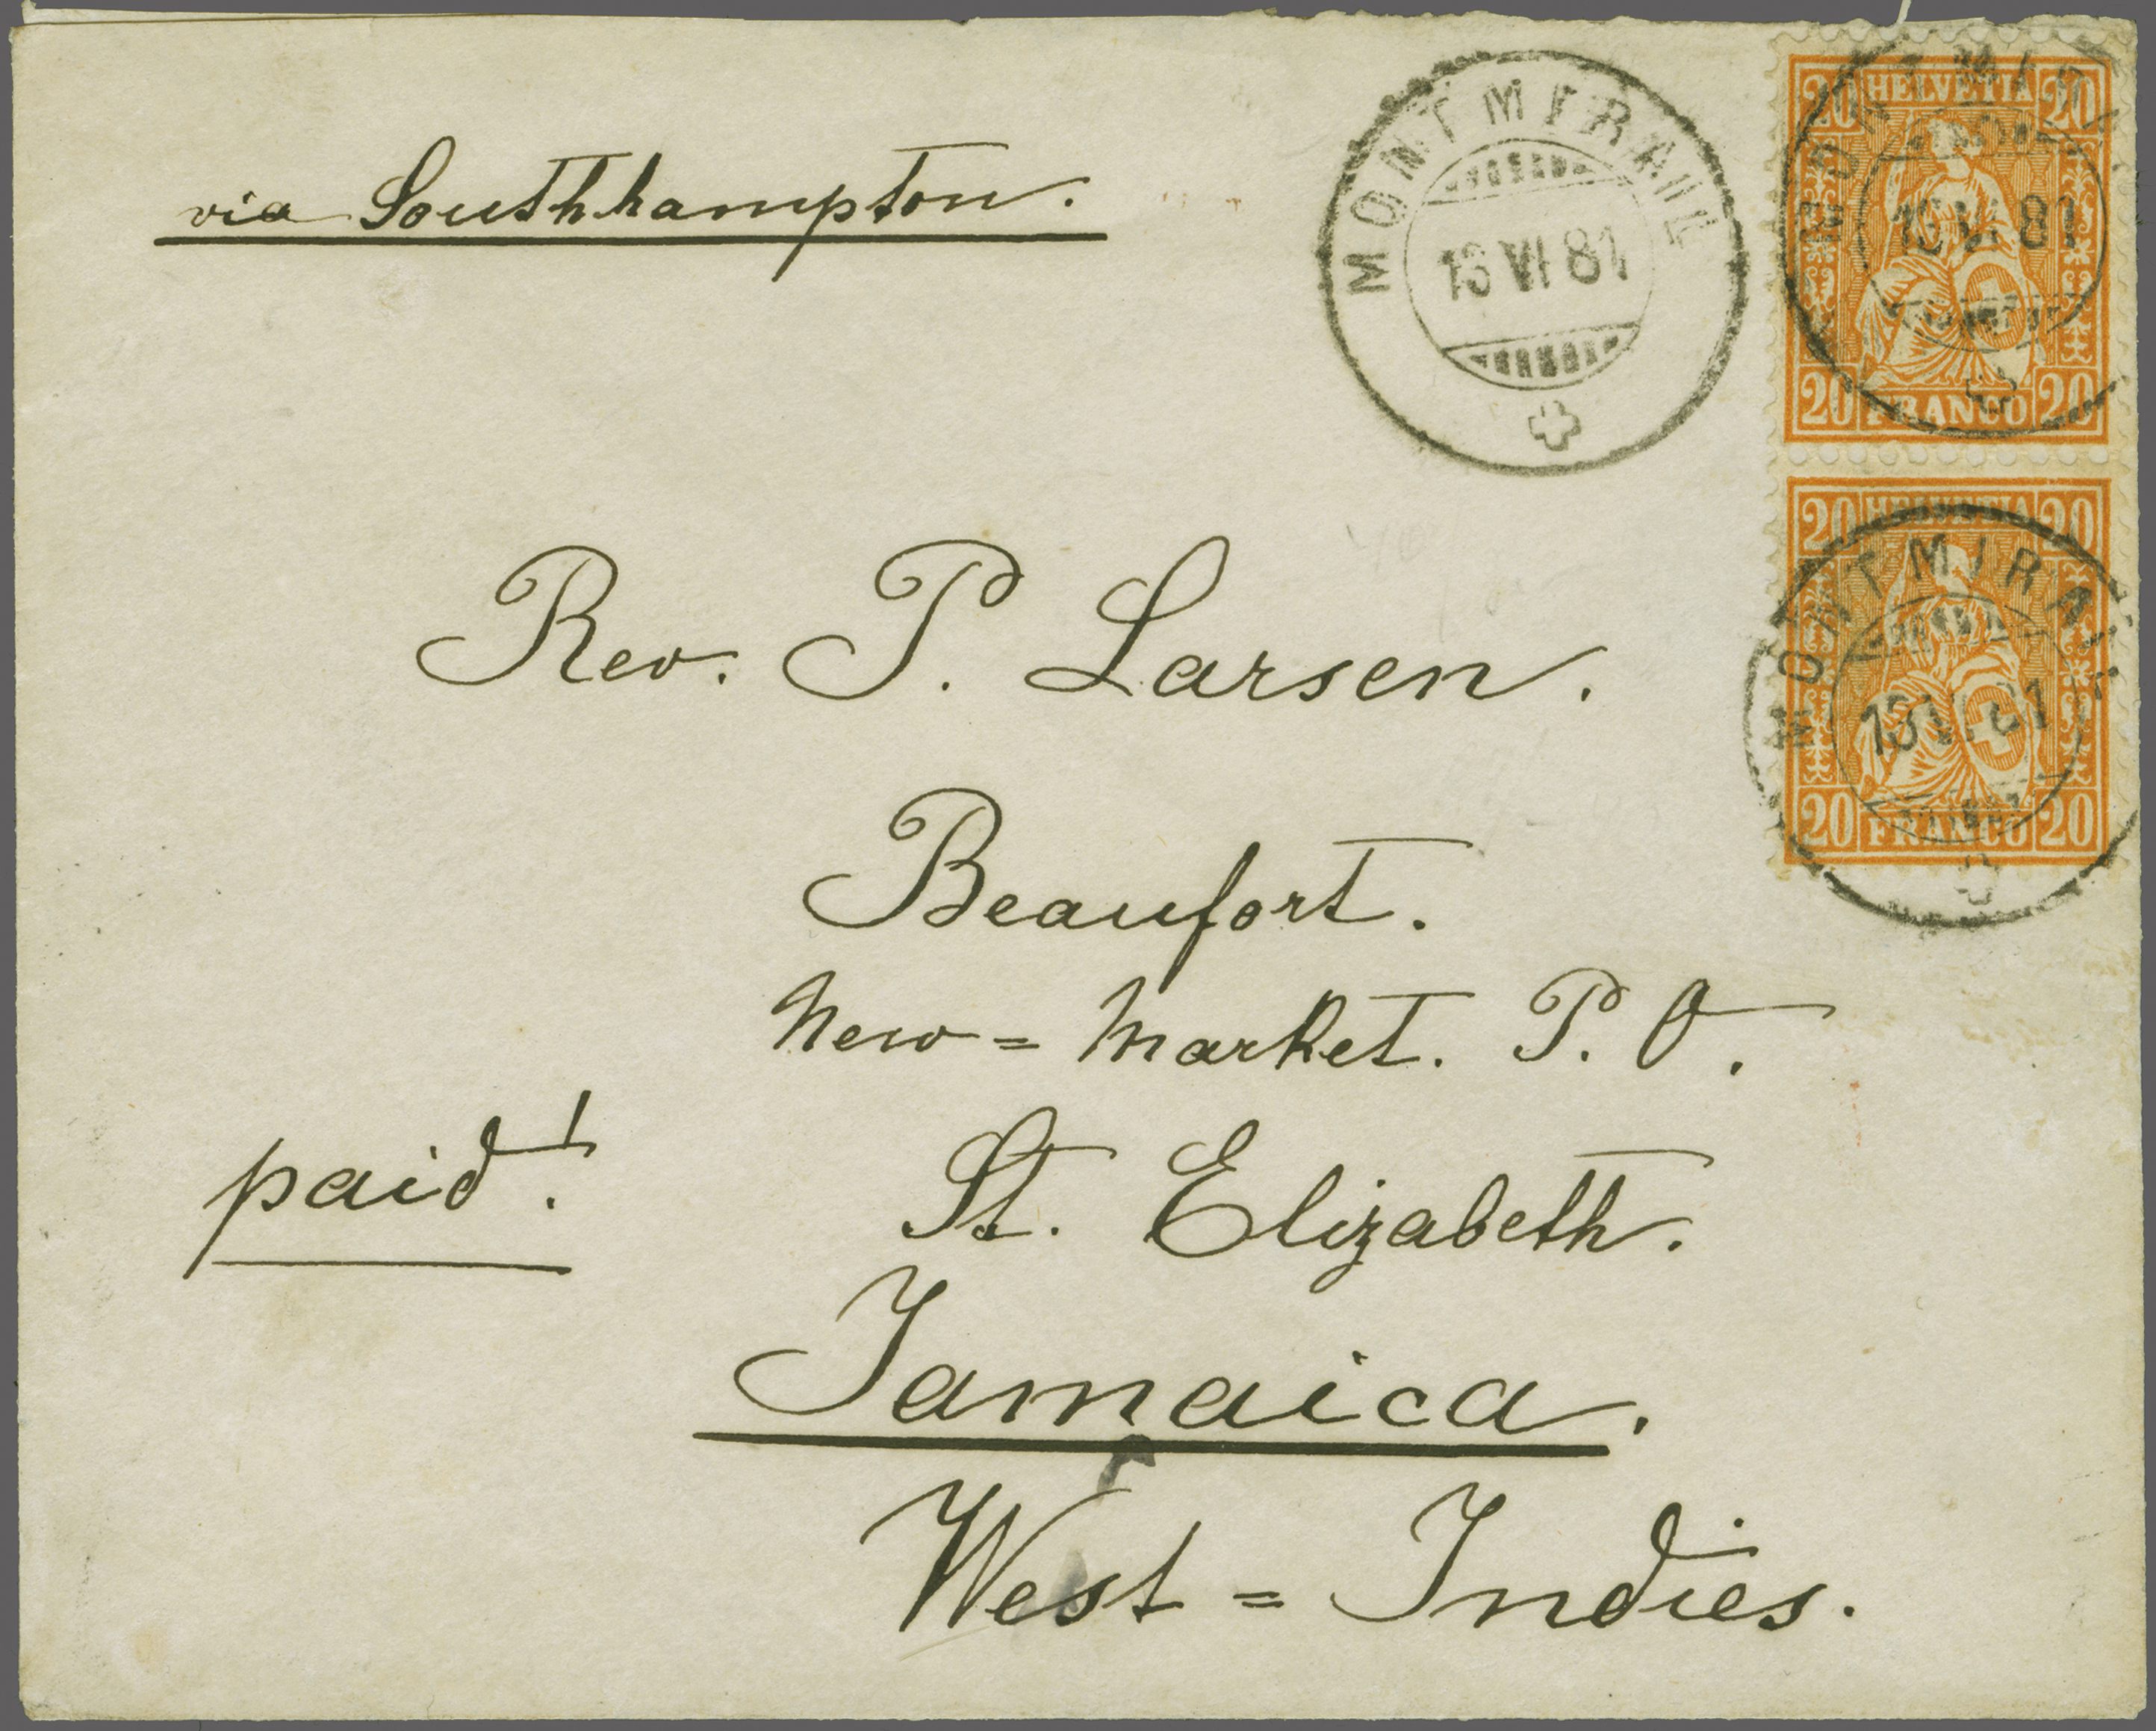 via Southhampton.
MONTMIRAIL
13 VI 81
20 HELVETIA 20
MONTMIRAIL
13 VI 81
20 FRANCO 20
20 HELVETIA 20
MONTMIRAIL
13 VI 81
20 FRANCO 20
Rev. P. Larsen.
Beaufort.
New=Market. P. O.
paid!
St. Elizabeth.
Jamaica.
West=Indies.